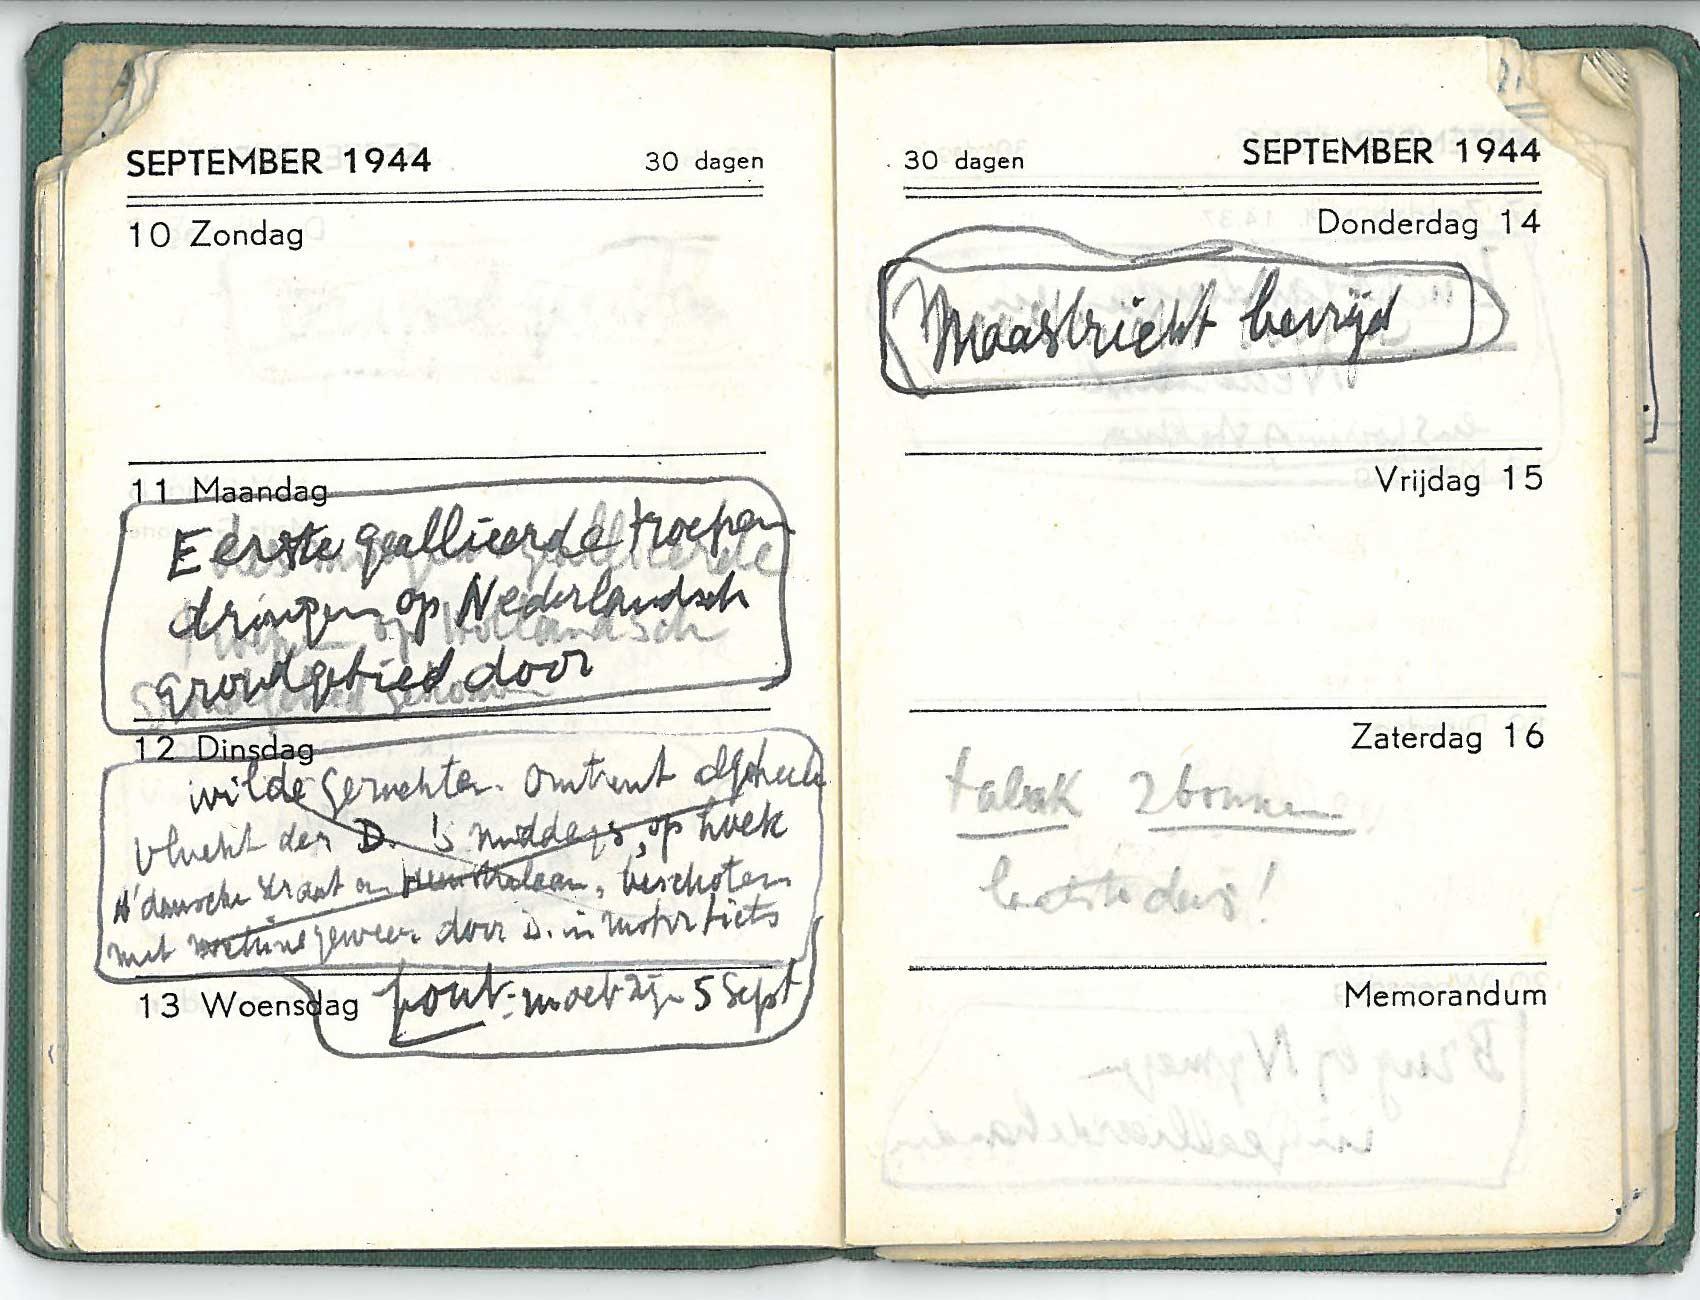 SEPTEMBER 1944 30 dagen
10 Zondag
11 Maandag
Eerste geallieerde troepen
dringen op Nederlandsch
grondgebied door
12 Dinsdag
wilde geruchten omtrent algeheele
vlucht der D. 's middags, op hoek
A'damsche straat en beschoten
met machinegeweer door D. in motorfiets
13 Woensdag fout: moet zijn 5 Sept
30 dagen SEPTEMBER 1944
Donderdag 14
Maastricht bevrijd
Vrijdag 15
Zaterdag 16
tabak 2 bonnen
laatste dag!
Memorandum